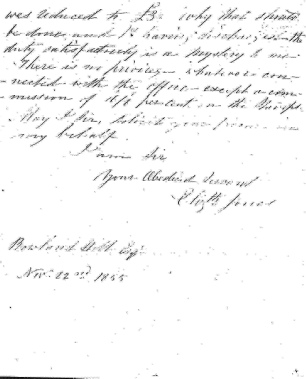 was reduced to £3. Why that should
be done and I having discharged the
duty satisfactorily is a mystery to me
There is no privilege whatever con-
nected with the office except a com-
mission of per cent on the
May I Sir, solicit your favour in
my behalf
I am Sir
Your Obedient Servant
Elizth Jones
Rowland Hill Esqr
Novr 22nd 1855